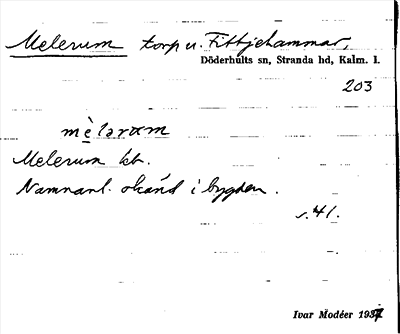 Melerum torp u. Fittjehammar,
Döderhults sn, Stranda hd, Kalm. l.
203
mèlərəm
Melerum kb.
Namnanl. okänd i bygden.
s. 41.
Ivar Modéer 1937